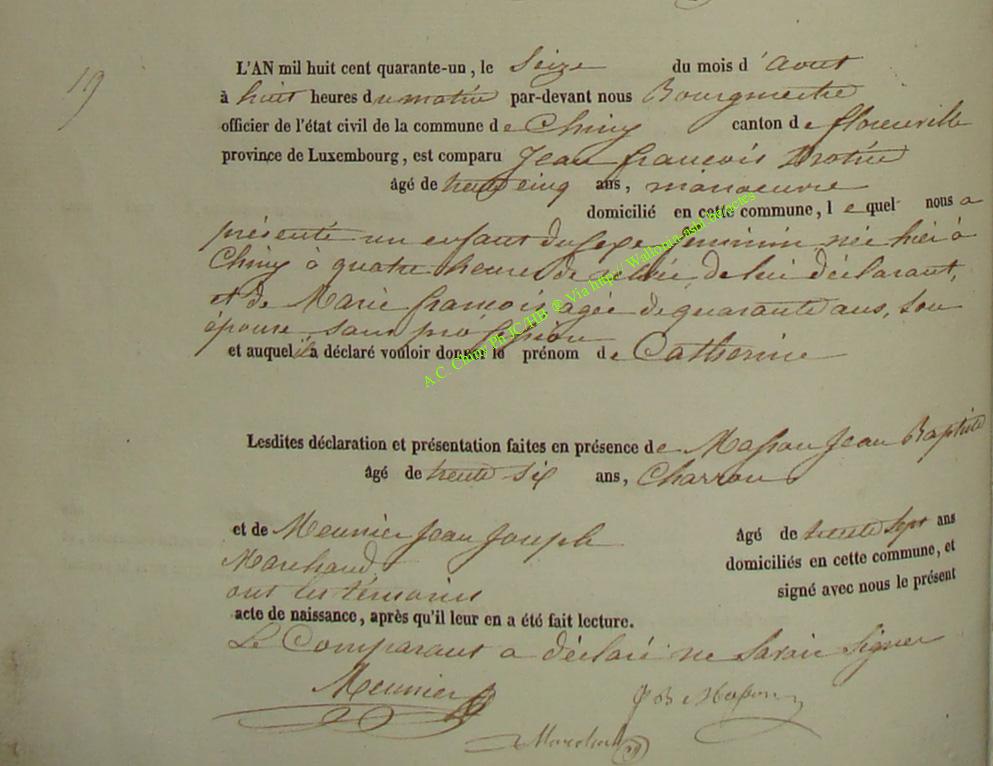 19
L'AN mil huit cent quarante-un, le Seize du mois d'Aout
à huit heures du matin par-devant nous Bourgmestre
officier de l'état civil de la commune de Chiny canton de florenville
province de Luxembourg, est comparu Jean françois
âgé de trente cinq ans, manoeuvre
domicilié en cette commune, lequel nous a
présenté un enfant du sexe féminin née hier à
Chiny à quatre heures de relevée, de lui déclarant,
et de Marie françois, agée de quarante ans, son
épouse sans profession
et auquel il a déclaré vouloir donner le prénom de Catherine
Lesdites déclaration et présentation faites en présence de Masson Jean Baptiste
âgé de trente six ans, Charron
et de Meunier Jean Joseph âgé de trente sept ans
Marchand domiciliés en cette commune, et
ont les témoins signé avec nous le présent
acte de naissance, après qu'il leur en a été fait lecture.
Le Comparant a déclaré ne savoir signer
Meunier
J B Masson
A.C. Chiny Ph JC/HB ® Via http:// Wallonia-asbl.be/actes